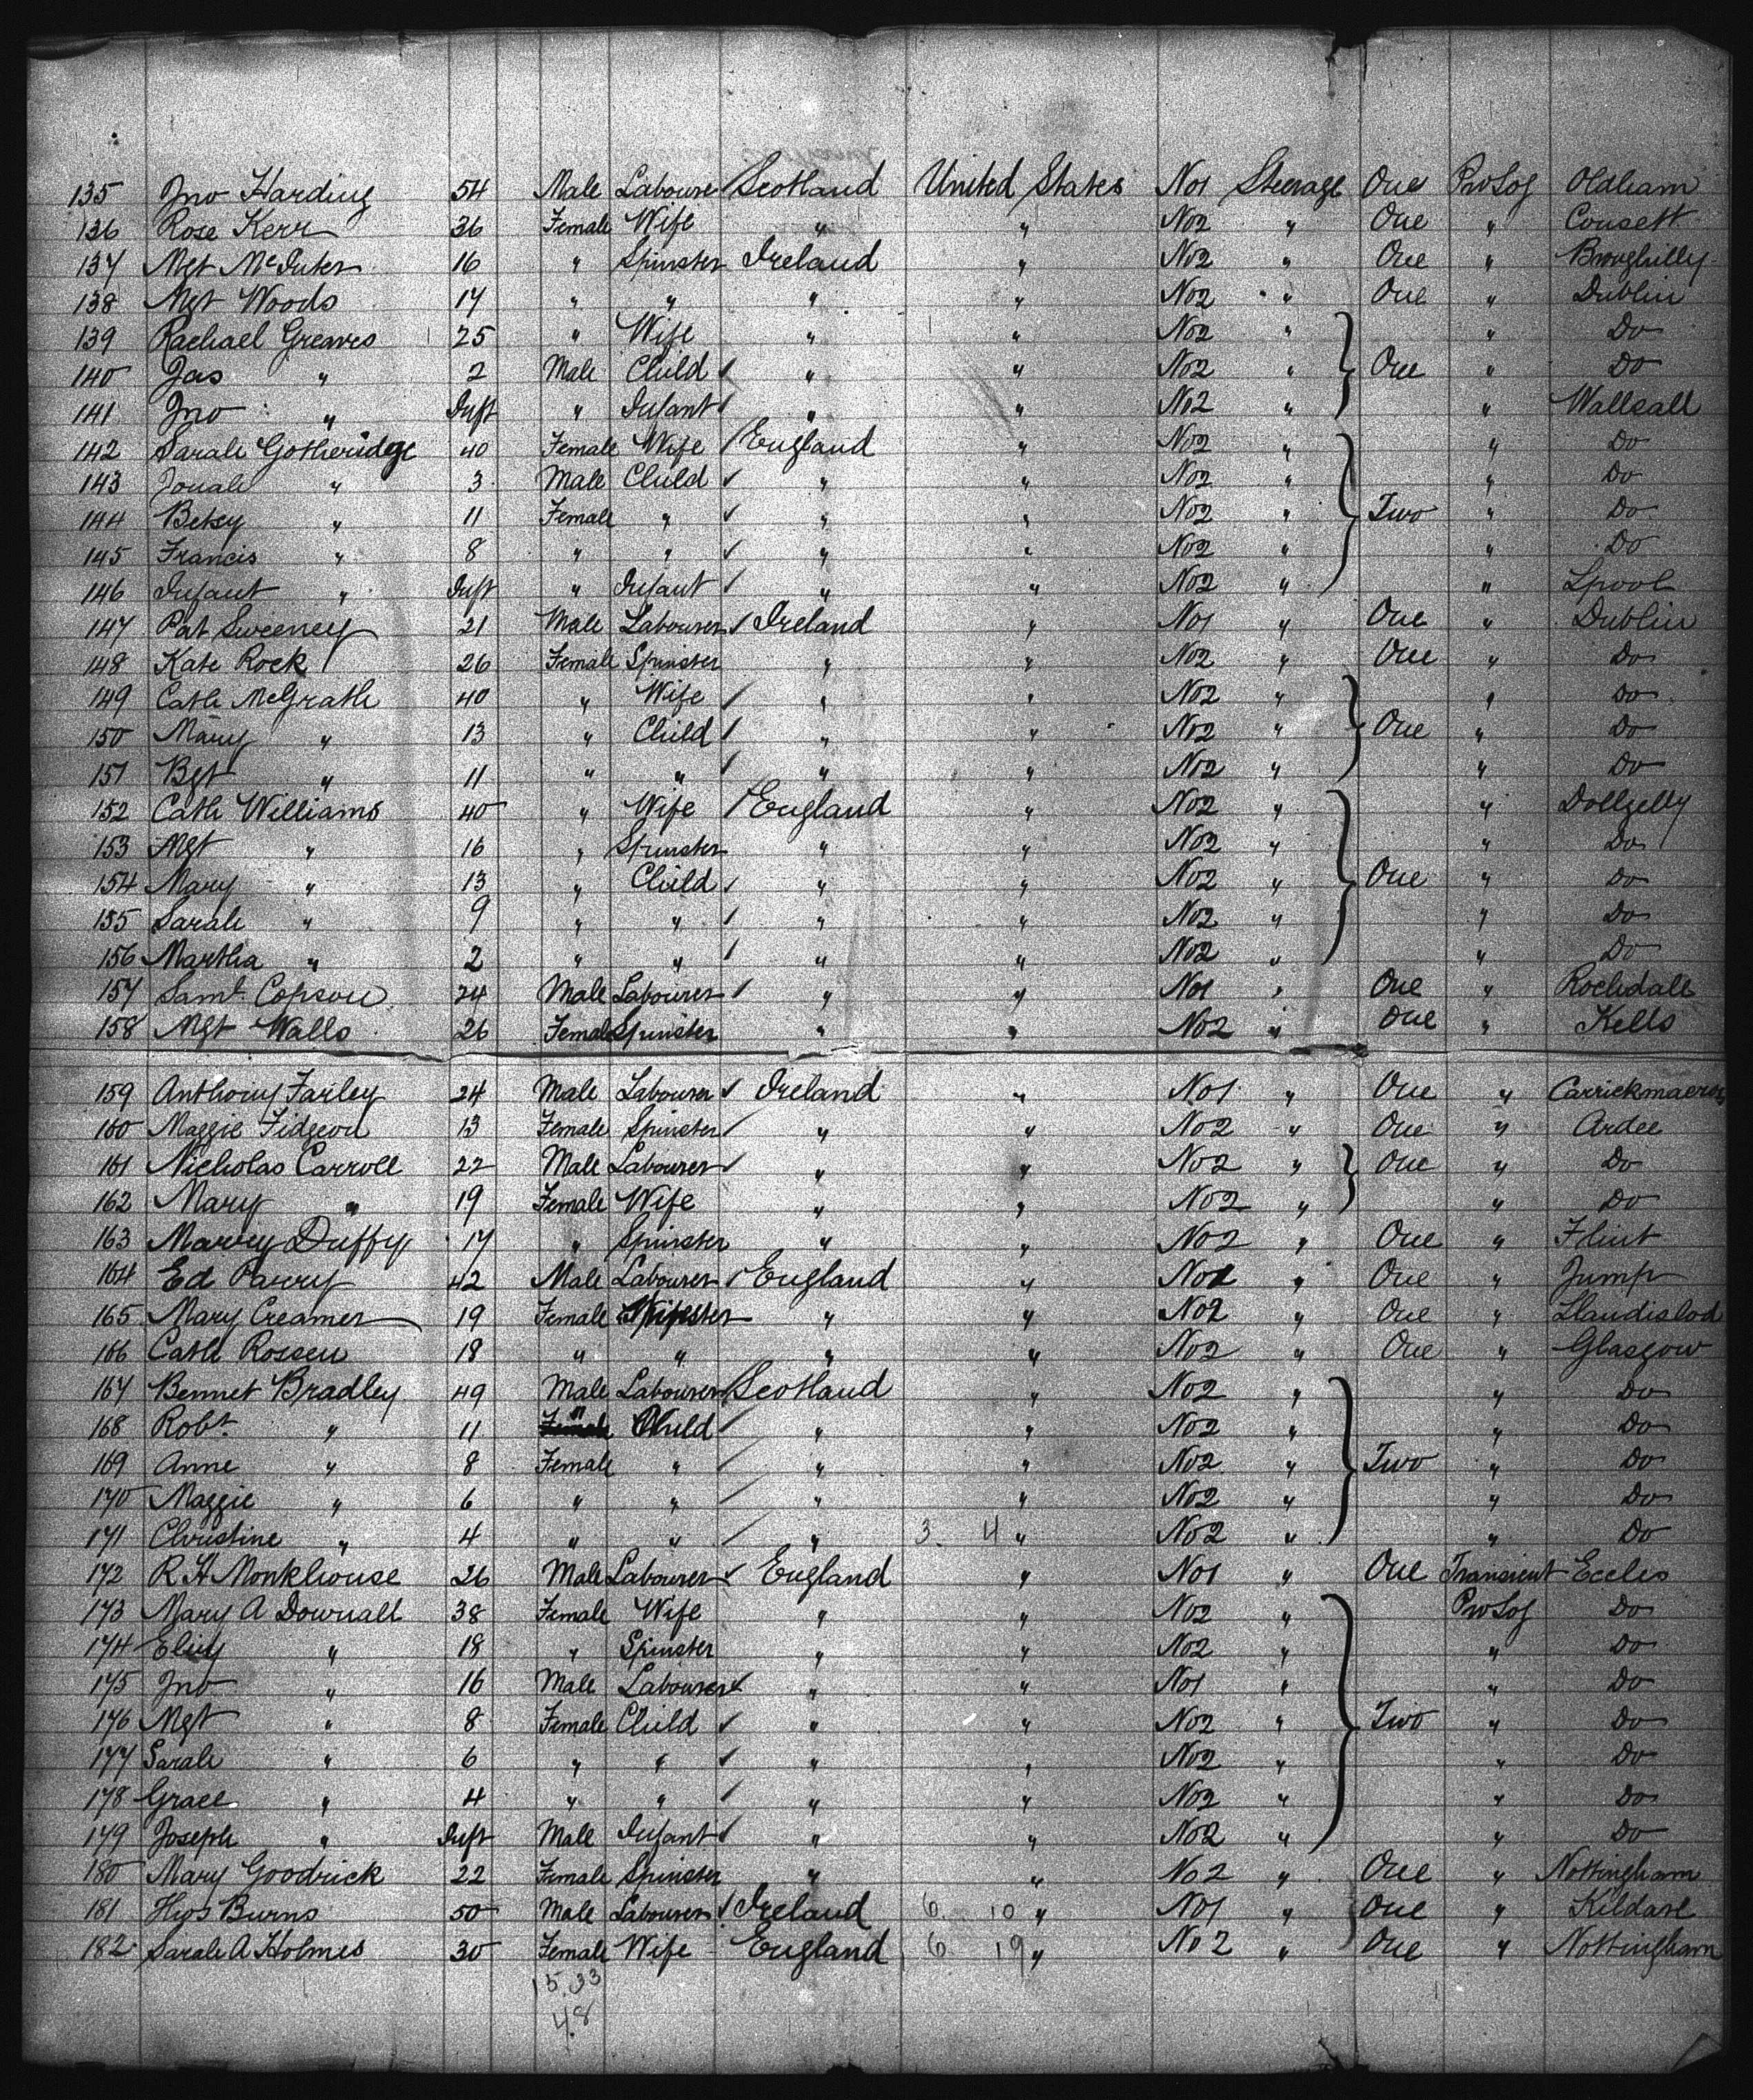 135 Jno Harding 54 Male Labourer Scotland United States No1 Steerage One ProLog Oldham
136 Rose Kerr 36 Female Wife " " No2 " One " Consett
137 Mgt McInter 16 " Spinster Ireland " No2 " One "
138 Mgt Woods 17 " " " " No2 " One " Dublin
139 Rachael Greaves 25 " Wife " " No2 " " Do
140 Jas " 2 Male Child " " No2 " One " Do
141 Jno " Inft " Infant " " No2 " " Wallsall
142 Sarah Gotheridge 40 Female Wife England " No2 " " Do
143 Jonah " 3 Male Child " " No2 " " Do
144 Betsy " 11 Female " " " No2 " Two " Do
145 Francis " 8 " " " " No2 " " Do
146 Infant " Inft " Infant " " No2 " " Lpool
147 Pat Sweeney 21 Male Labourer Ireland " No1 " One " Dublin
148 Kate Rock 26 Female Spinster " " No2 " One " Do
149 Cath McGrath 40 " Wife " " No2 " " Do
150 Mary " 13 " Child " " No2 " One " Do
151 Bgt " 11 " " " " No2 " " Do
152 Cath Williams 40 " Wife England " No2 " " Dollgelly
153 Mgt " 16 " Spinster " " No2 " " Do
154 Mary " 13 " Child " " No2 " One " Do
155 Sarah " 9 " " " " No2 " " Do
156 Martha " 2 " " " " No2 " " Do
157 Saml Copson 24 Male Labourer " " No1 " One " Rochdale
158 Mgt Walls 26 Female Spinster " " No2 " One " Kells
159 Anthony Farley 24 Male Labourer Ireland " No1 " One " Carrickmacross
160 Maggie Fidgeon 13 Female Spinster " " No2 " One " Ardee
161 Nicholas Carroll 22 Male Labourer " " No2 " One " Do
162 Mary " 19 Female Wife " " No2 " " Do
163 Marvey Duffy 17 " Spinster " " No2 " One " Flint
164 Ed Parry 42 Male Labourer England " No1 " One " Jump
165 Mary Creamer 19 Female Spinster " " No2 " One " Llandislod
166 Cath Rossen 18 " " " " No2 " One " Glasgow
167 Bennet Bradley 49 Male Labourer Scotland " No2 " " Do
168 Robt " 11 " Child " " No2 " " Do
169 Anne " 8 Female " " " No2 " Two " Do
170 Maggie " 6 " " " " No2 " " Do
171 Christine " 4 " " " 3. 4 " No2 " " Do
172 R H Monkhouse 26 Male Labourer England " No1 " One Transient Eccles
173 Mary A Downall 38 Female Wife " " No2 " ProLog Do
174 Elizy " 18 " Spinster " " No2 " " Do
175 Jno " 16 Male Labourer " " No1 " " Do
176 Mgt " 8 Female Child " " No2 " Two " Do
177 Sarah " 6 " " " " No2 " " Do
178 Grace " 4 " " " " No2 " " Do
179 Joseph " Inft Male Infant " " No2 " " Do
180 Mary Goodrick 22 Female Spinster " " No2 " One " Nottingham
181 Hugs Burns 50 Male Labourer Ireland 6. 10 " No1 " One " Kildare
182 Sarah A Holmes 30 Female Wife England 6 19 " No2 " One " Nottingham
15.33
48